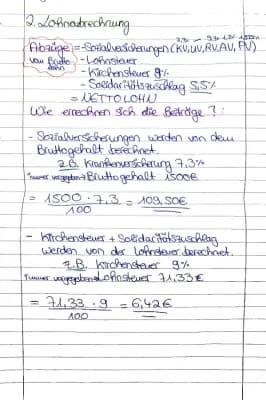 2. Lohnabrechnung
Abzüge = - Sozialversicherungen (KV, UV, RV, AV, PV)
vom Brutto - Lohnsteuer
lohn - Kirchensteuer 9%
- Solidaritätszuschlag 5,5%
= NETTOLOHN
Wie errechnen sich die Beträge?:
- Sozialversicherungen werden von dem
Bruttogehalt berechnet.
z.B. Krankenversicherung 7,3%
immer vorgegeben→ Bruttogehalt 1500€
= 1500 · 7,3 = 109,50€
100
- Kirchensteuer + Solidaritätszuschlag
werden von der Lohnsteuer berechnet.
z.B. Kirchensteuer 9%
immer vorgegeben Lohnsteuer 71,33€
= 71,33 · 9 = 6,42€
100